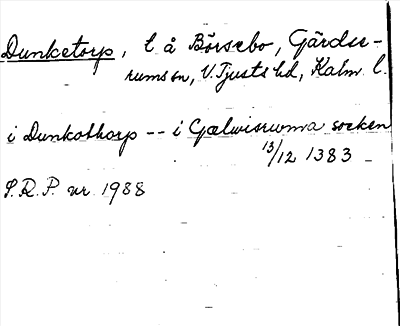 Dunketorp, l å Börsebo, Gärdse-
rums sn, V. Tjusts hd, Kalm. l.
i Dunkathorp -- i Gælwisrwma socken
13/12 1383
S.R.P. nr 1988